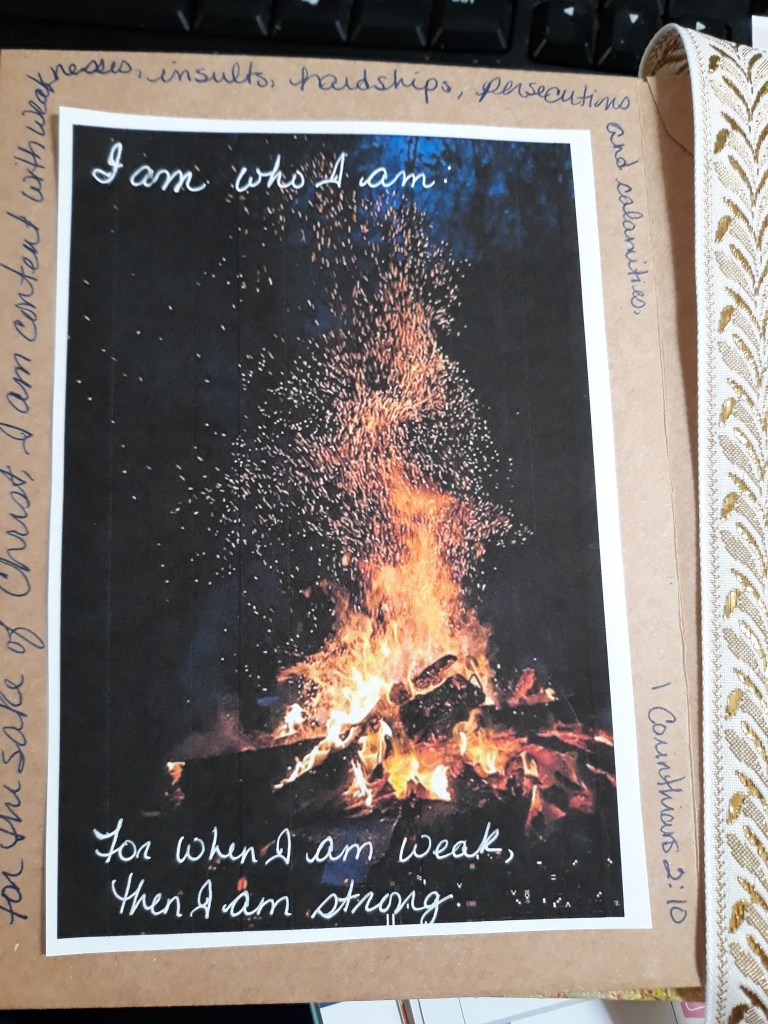 for the sake of Christ, I am content with weaknesses, insults, hardships, persecutions and calamities.
1 Corinthians 2:10
I am who I am:
For when I am weak,
then I am strong.